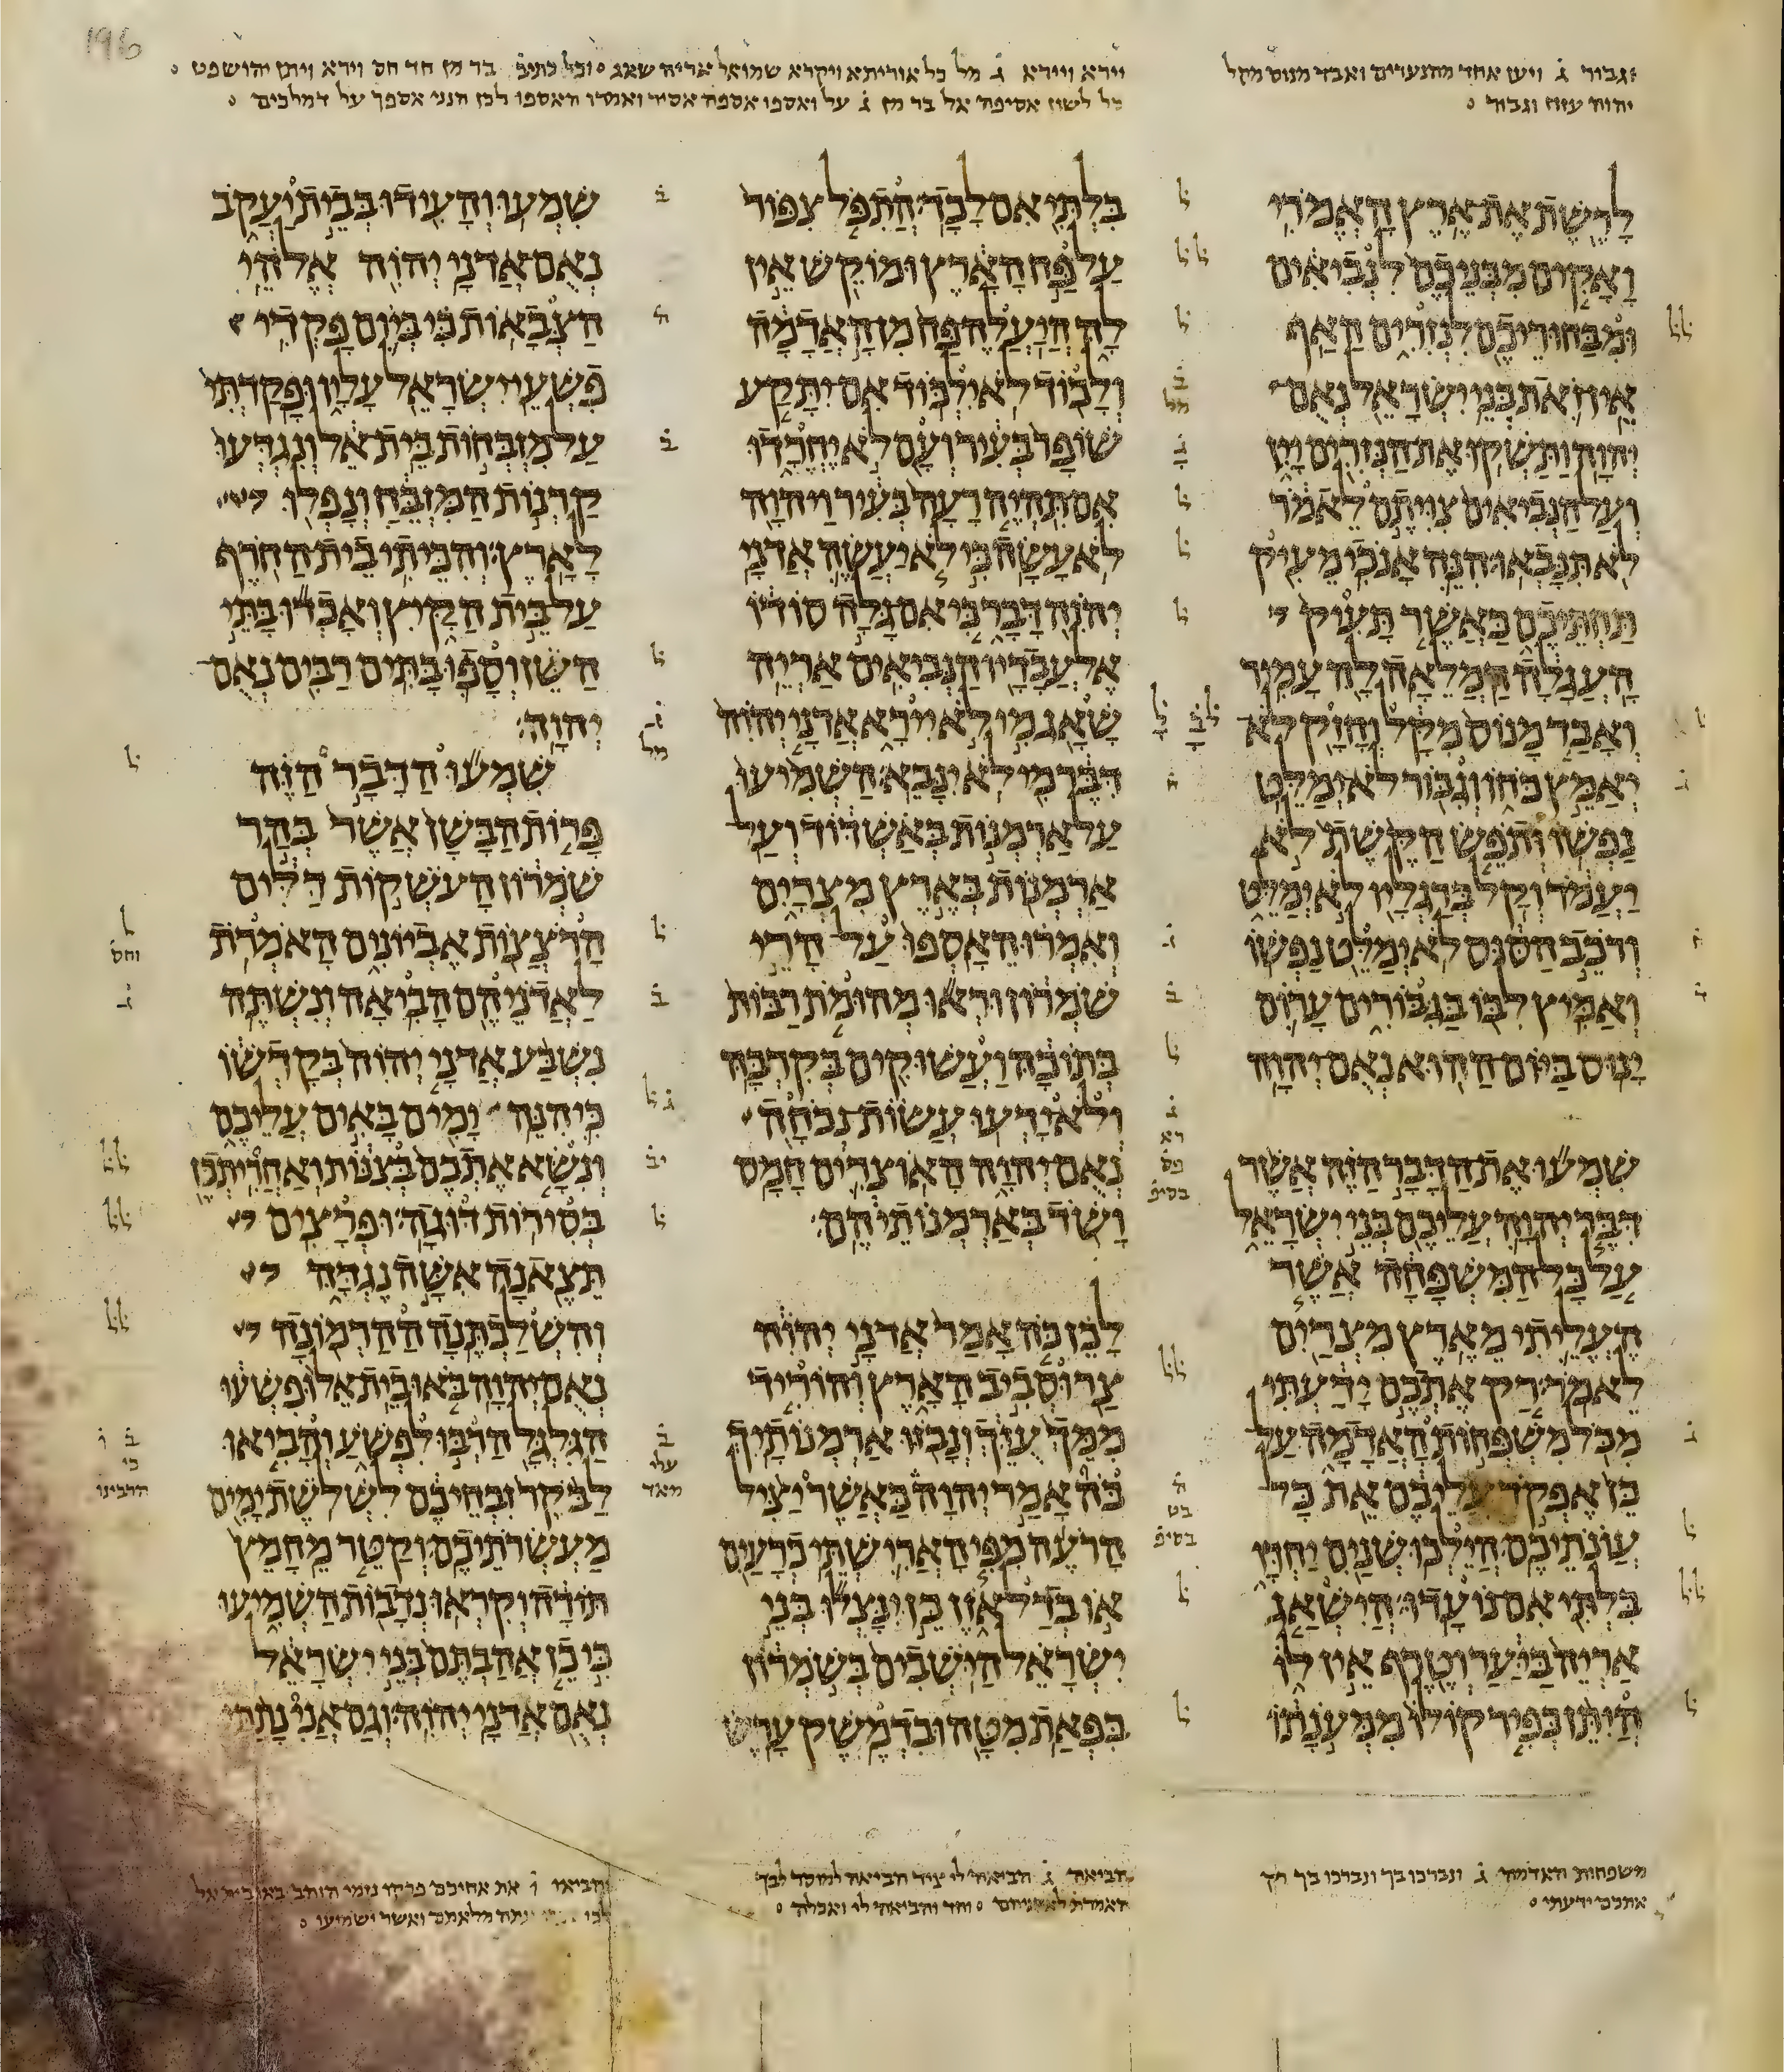 196
וגבור ג ויען אחד מהנערים ואבד מנוס מקל
יהוה עזוז וגבור
יירא ויירא ג מל כל אוריתא ויקרא שמואל אריה שאג וכל כתיב בר מן חד חס וירא ויתן יהושפט
כל לשון אסיפה אל בר מן ג על ואספו אספה אסיר האספו לכן הנני אספך על דמלכים
לרשת את ארץ האמרי
ואקים מבניכם לנביאים
ומבחוריכם לנזרים האף
אין זאת בני ישראל נאם
יהוה ותשקו את הנזרים יין
ועל הנביאים צויתם לאמר
לא תנבאו הנה אנכי מעיק
תחתיכם כאשר תעיק
העגלה המלאה לה עמיר
ואבד מנוס מקל וחזק לא
יאמץ כחו וגבור לא ימלט
נפשו ותפש הקשת לא
יעמד וקל ברגליו לא ימלט
ורכב הסוס לא ימלט נפשו
ואמיץ לבו בגבורים ערום
ינוס ביום ההוא נאם יהוה
שמעו את הדבר הזה אשר
דבר יהוה עליכם בני ישראל
על כל המשפחה אשר
העליתי מארץ מצרים
לאמר רק אתכם ידעתי
מכל משפחות האדמה על
כן אפקד עליכם את כל
עונתיכם הילכו שנים יחדו
בלתי אם נועדו הישאג
אריה ביער וטרף אין לו
היתן כפיר קולו ממענתו
בלתי אם לכד התפל צפור
על פח הארץ ומוקש אין
לה היעלה פח מן האדמה
ולכוד לא ילכוד אם יתקע
שופר בעיר ועם לא יחרדו
אם תהיה רעה בעיר ויהוה
לא עשה כי לא יעשה אדני
יהוה דבר כי אם גלה סודו
אל עבדיו הנביאים אריה
שאג מי לא יירא אדני יהוה
דבר מי לא ינבא השמיעו
על ארמנות באשדוד ועל
ארמנות בארץ מצרים
ואמרו האספו על הרי
שמרון וראו מהומת רבות
בתוכה ועשוקים בקרבה
ולא ידעו עשות נכחה
נאם יהוה האוצרים חמס
ושד בארמנותיהם
לכן כה אמר אדני יהוה
צר וסביב הארץ והוריד
ממך עזך ונבזו ארמנותיך
כה אמר יהוה כאשר יציל
הרעה מפי הארי שתי כרעים
או בדל אזן כן ינצלו בני
ישראל הישבים בשמרון
בפאת מטה ובדמשק ערש
שמעו והעידו בבית יעקב
נאם אדני יהוה אלהי
הצבאות כי ביום פקדי
פשעי ישראל עליו ופקדתי
על מזבחות בית אל ונגדעו
קרנות המזבח ונפלו
לארץ והכיתי בית החרף
על בית הקיץ ואבדו בתי
השן וספו בתים רבים נאם
יהוה
שמעו הדבר הזה
פרות הבשן אשר בהר
שמרון העשקות דלים
הרצצות אביונים האמרת
לאדניהם הביאה ונשתה
נשבע אדני יהוה בקדשו
כי הנה ימים באים עליכם
ונשא אתכם בצנות ואחריתכן
בסירות דוגה ופרצים
תצאנה אשה נגדה
והשלכתנה ההרמונה
נאם יהוה באו בית אל ופשעו
הגלגל הרבו לפשע והביאו
לבקר זבחיכם לשלשת ימים
מעשרתיכם וקטר מחמץ
תודה וקראו נדבות השמיעו
כי כן אהבתם בני ישראל
נאם אדני יהוה וגם אני נתתי
משפחות האדמה ג ונברכו בך ונברכו בך רק
אתכם ידעתי
הביאה ג הביאה לי ציד הביאה למוסר לבך
האמרת לאדניהם וחד והביאה לי ואכלה
והביאו ו את אחיכם פרקו נזמי הזהב באו בית אל
מלאתם ואשר ישמיעו